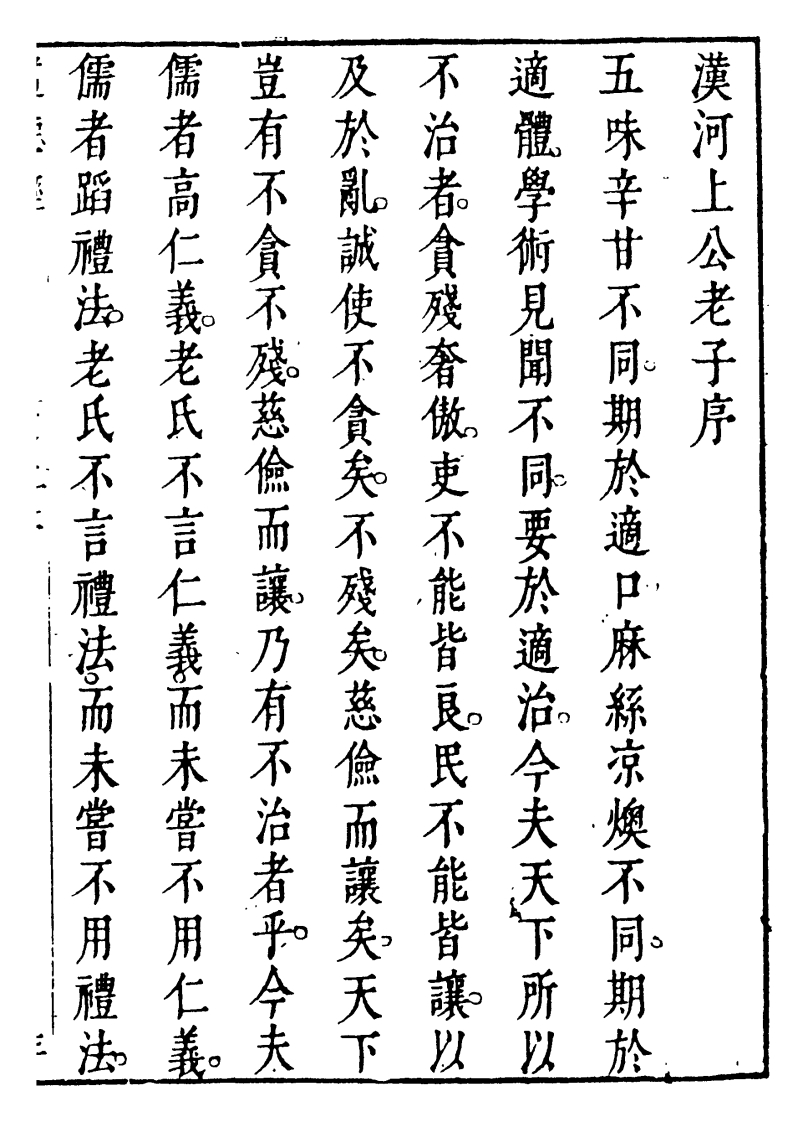 漢河上公老子序
五味辛甘不同。期於適口麻絲凉燠不同。期於
適體。學術見聞不同。要於適治。今夫天下所以
不治者。貪殘奢傲。吏不能皆良。民不能皆讓。以
及於亂。誠使不貪矣。不殘矣。慈儉而讓矣。天下
豈有不貪不殘。慈儉而讓。乃有不治者乎。今夫
儒者高仁義。老氏不言仁義。而未嘗不用仁義。
儒者蹈禮法。老氏不言禮法。而未嘗不用禮法。